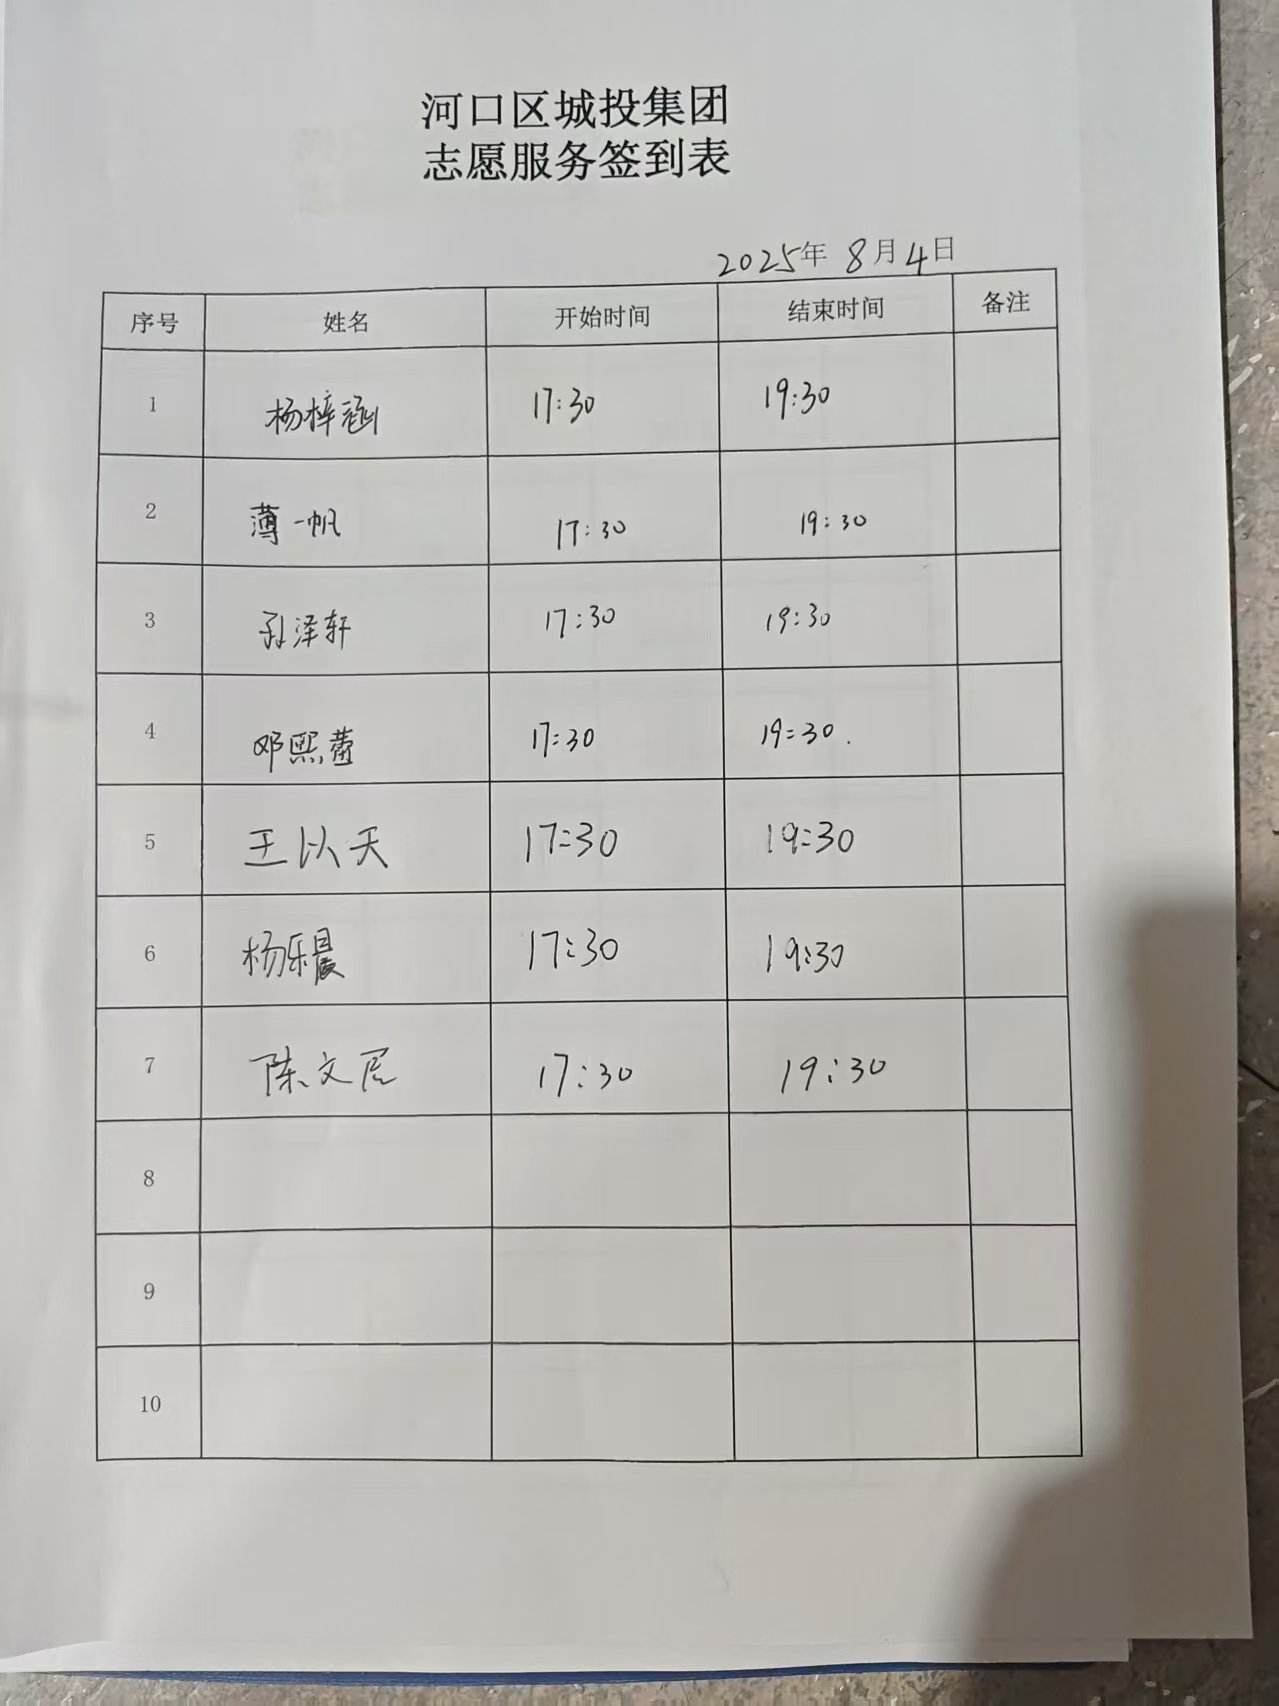 河口区城投集团
志愿服务签到表
2025年 8月4日
序号 姓名 开始时间 结束时间 备注
1 杨梓涵 17:30 19:30
2 薄一帆 17:30 19:30
3 孙泽轩 17:30 19:30
4 邓熙蕾 17:30 19:30.
5 王以天 17:30 19:30
6 杨乐晨 17:30 19:30
7 陈文 17:30 19:30
8
9
10